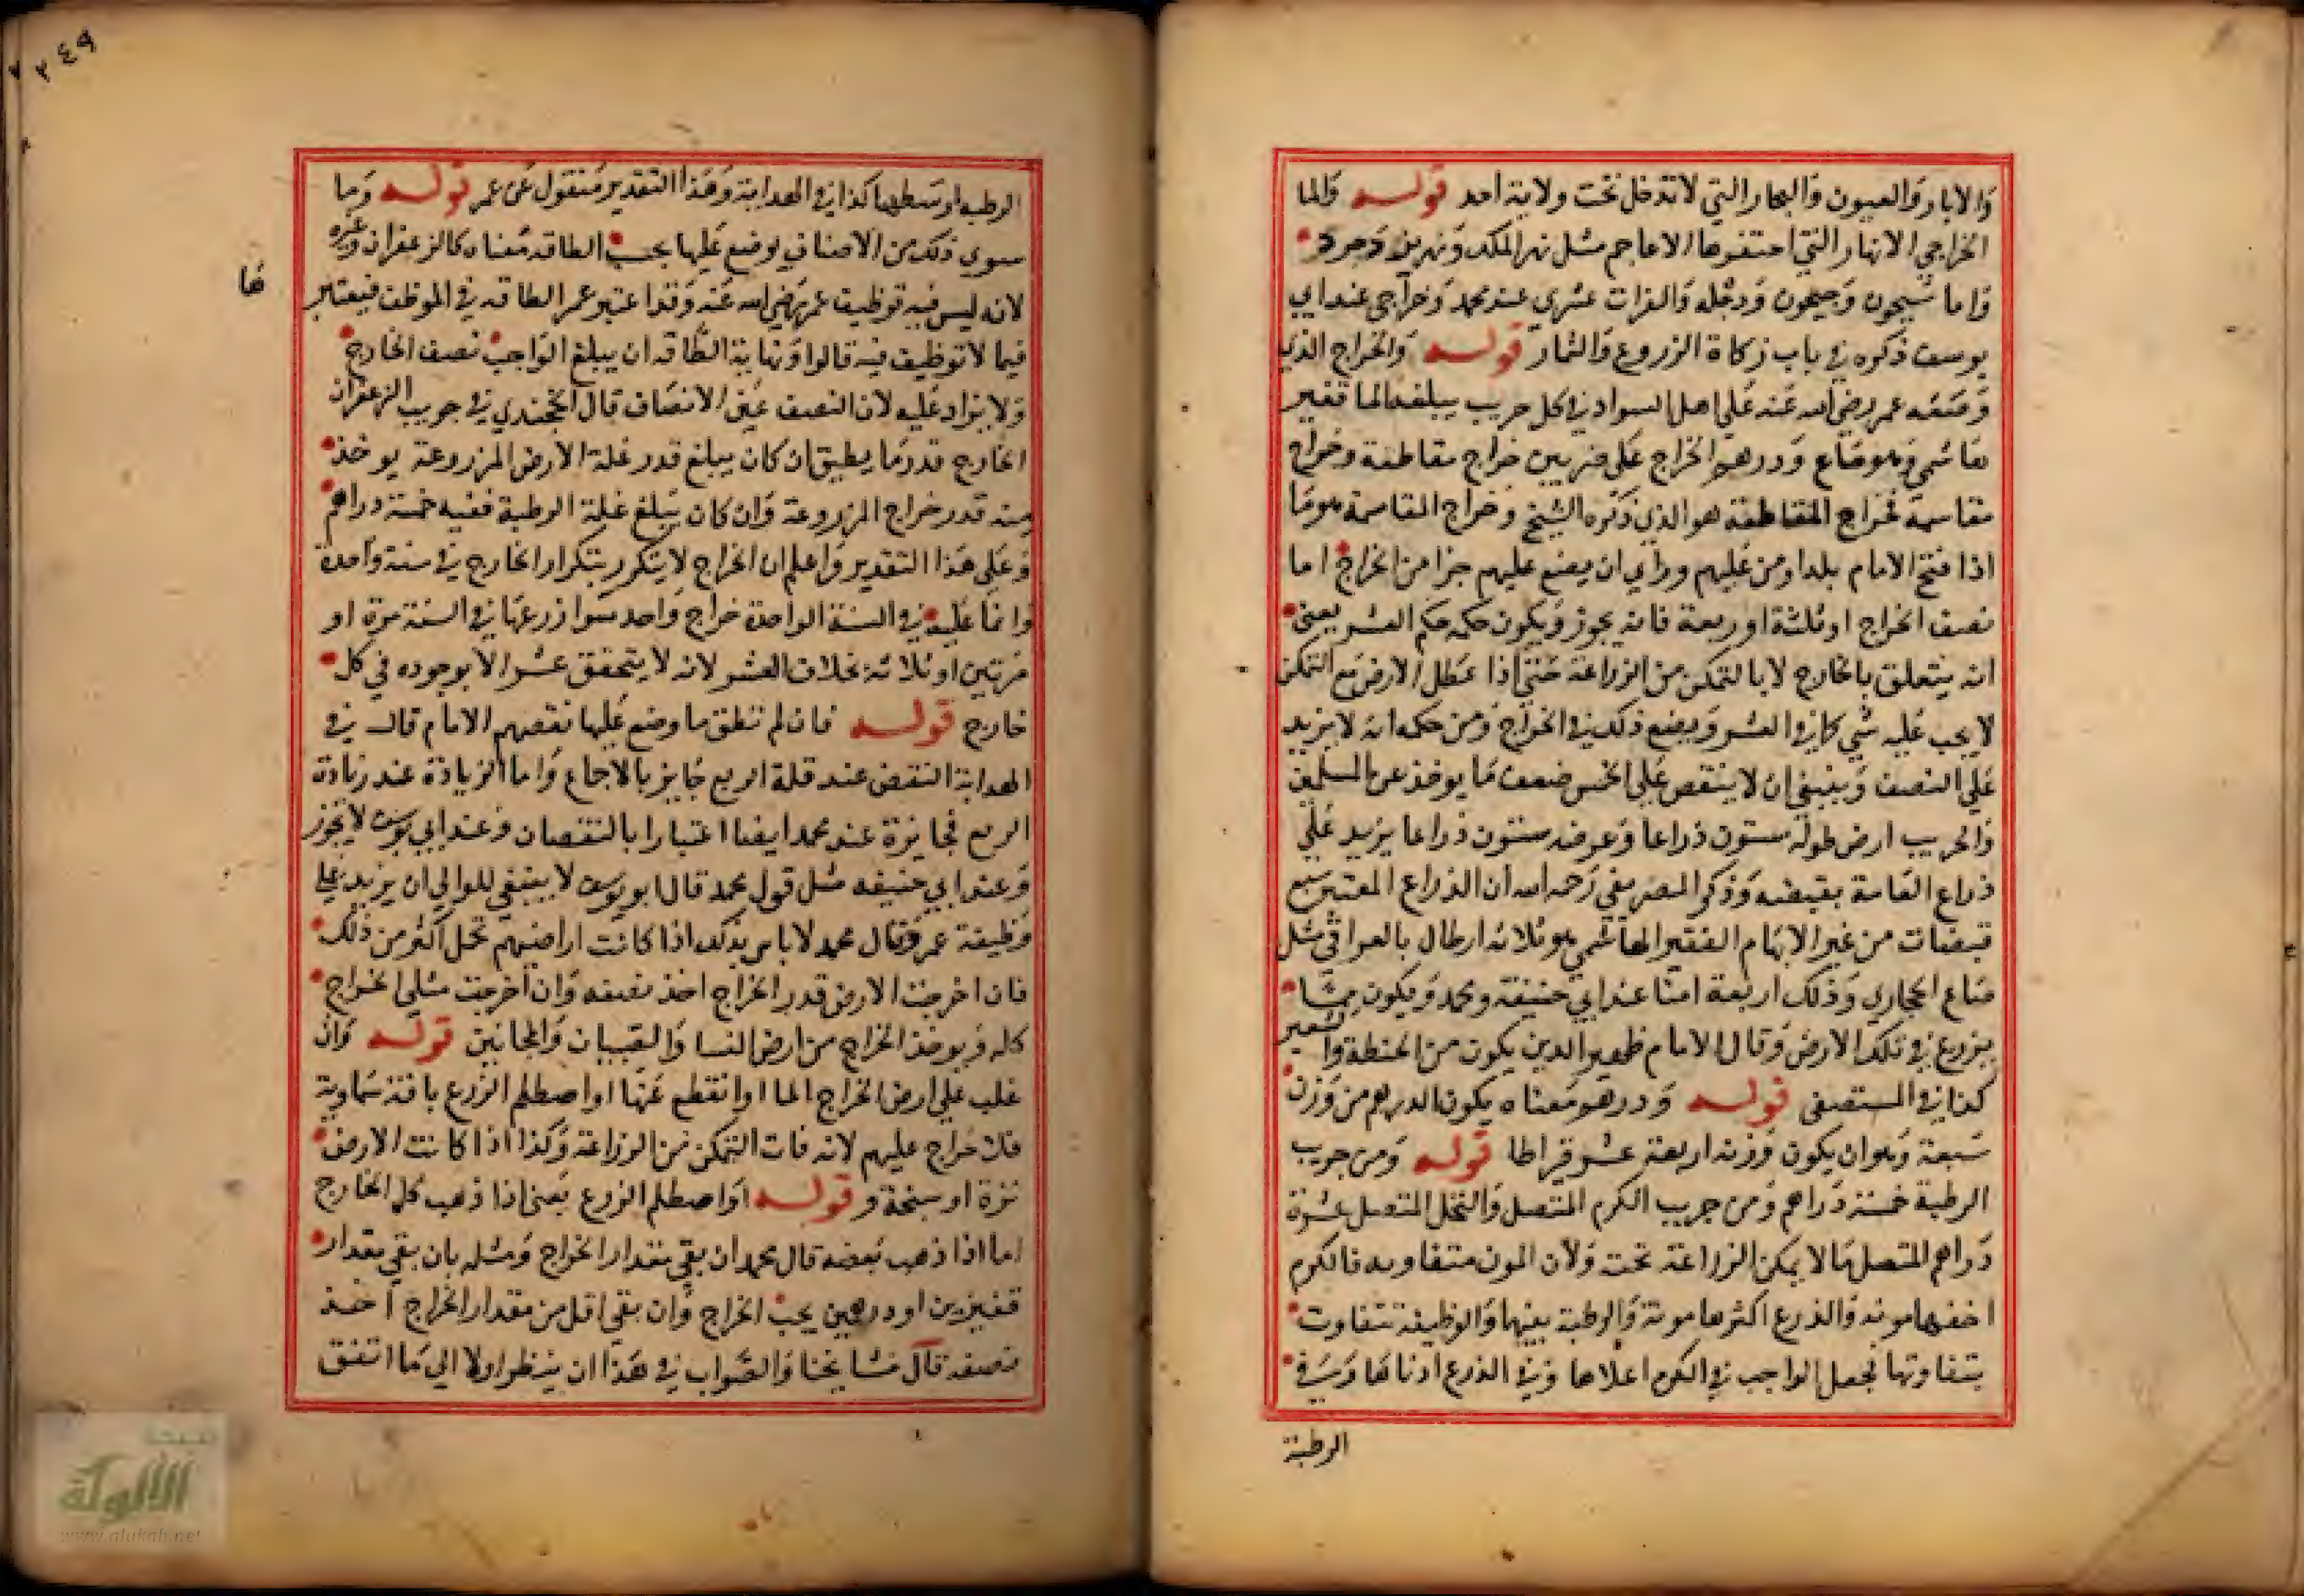 والابار والعيون والبحار التي لا تدخل تحت ولاية احد قوله والما
الخراجي الانهار التي احتفرها الاعاجم مثل نهر الملك ونهر يزدجرد
واما سيحون وجيحون ودجلة والفرات عشري عند محمد وخراجي عند ابي
يوسف ذكره في باب زكاة الزروع والثمار قوله والخراج الذي
وضعه عمر رضي الله عنه على اهل السواد في كل جريب يبلغه الما قفيز
هاشمي وهو صاع ودرهم الخراج على ضربين خراج مقاطعة وخراج
مقاسمة فخراج المقاطعة هو الذي ذكره الشيخ وخراج المقاسمة هو ما
اذا فتح الامام بلدا ومن عليهم وراي ان يضع عليهم جزا من الخراج اما
نصف الخراج او ثلثه او ربعه فانه يجوز ويكون حكمه حكم العشر يعني
انه يتعلق بالخارج لا بالتمكن من الزراعة حتى اذا عطل الارض مع التمكن
لا يجب عليه شي كما في العشر ويضع ذلك في الخراج ومن حكمه انه لا يزيد
على النصف وينبغي ان لا ينقص على الخمس ضعف ما يوخذ من المسلمين
والجريب ارض طوله ستون ذراعا وعرضه ستون ذراعا يزيد على
ذراع العامة بقبضه وذكر المصرفي رحمه الله ان الذراع المعتبر سبع
قبضات من غير الابهام القفيز الهاشمي هو ثلاثه ارطال بالعراقي مثل
صاع الحجازي وذلك اربعة امنا عند ابي حنيفة ومحمد ويكون مما
يزرع في تلك الارض وقال الامام ظهير الدين يكون من الحنطة والشعير
كذا في المستصفى قوله ودرهم معناه يكون الدرهم من وزن
سبعة وهو ان يكون وزنه اربعة عشر قيراطا قوله ومن جريب
الرطبة خمسة دراهم ومن جريب الكرم المتصل والنخل المتصل عشرة
دراهم المتصل ما لا يمكن الزراعة تحته ولان المون متفاوته فالكرم
اخفها مونه والذرع اكثرها مونة والرطبة بينهما والوظيفة تتفاوت
بتفاوتها فجعل الواجب في الكرم اعلاها وفي الذرع ادناها وفي
الرطبة
٢٤٩
الرطبه اوسطها كذا في الهداية وهذا التقدير منقول عن عمر قوله وما
سوى ذلك من الاصناف يوضع عليها بحسب الطاقه معناه كالزعفران وغيره
لانه ليس فيه توظيف عمر رضي الله عنه وقد اعتبر عمر الطاقه في الموظف فيعتبر
فيما لا توظيف فيه قالوا ونهاية الطاقه ان يبلغ الواجب نصف الخارج
ولا يزاد عليه لان النصف عين الانصاف قال الخجندي في جريب الزعفران
الخارج قدر ما يطيق ان كان يبلغ قدر غلة الارض المزروعة يوخذ
منه قدر خراج المزروعة وان كان يبلغ غلة الرطبة ففيه خمسة دراهم
وعلى هذا التقدير واعلم ان الخراج لا يتكرر بتكرار الخارج في سنة واحدة
وانما عليه في السنة الواحدة خراج واحد سوا زرعها في السنة مرة او
مرتين او ثلاثة بخلاف العشر لانه لا يتحقق عشرا الا بوجوده في كل
خارج قوله فان لم تطق ما وضع عليها نقصهم الامام قال في
الهداية النقص عند قلة الريع جايز بالاجماع واما الزيادة عند زيادة
الريع فجايزة عند محمد ايضا اعتبارا بالنقصان وعند ابي يوسف لا يجوز
وعند ابي حنيفه مثل قول محمد قال ابو يوسف لا ينبغي للوالي ان يزيد على
وظيفة عمر وقال محمد لا باس بذلك اذا كانت اراضيهم تحمل اكثر من ذلك
فان اخرجت الارض قدر الخراج اخذ نصفه وان اخرجت مثلي الخراج
كله ويوخذ الخراج من ارض النسا والصبيان والمجانين قوله وان
غلب على ارض الخراج الما او انقطع عنها او اصطلم الزرع بافة سماوية
فلا خراج عليهم لانه فات التمكن من الزراعة وكذا اذا كانت الارض
نزة او سبخة و قوله او اصطلم الزرع يعني اذا ذهب كل الخارج
اما اذا ذهب بعضه قال محمد ان بقي مقدار الخراج ومثله بان بقي مقدار
قفيزين او درهمين يجب الخراج وان بقي اقل من مقدار الخراج اخذ
نصفه قال مشايخنا والصواب في هذا ان ينظر اولا الي ما اتفق
شبكة
الألوكة
www.alukah.net